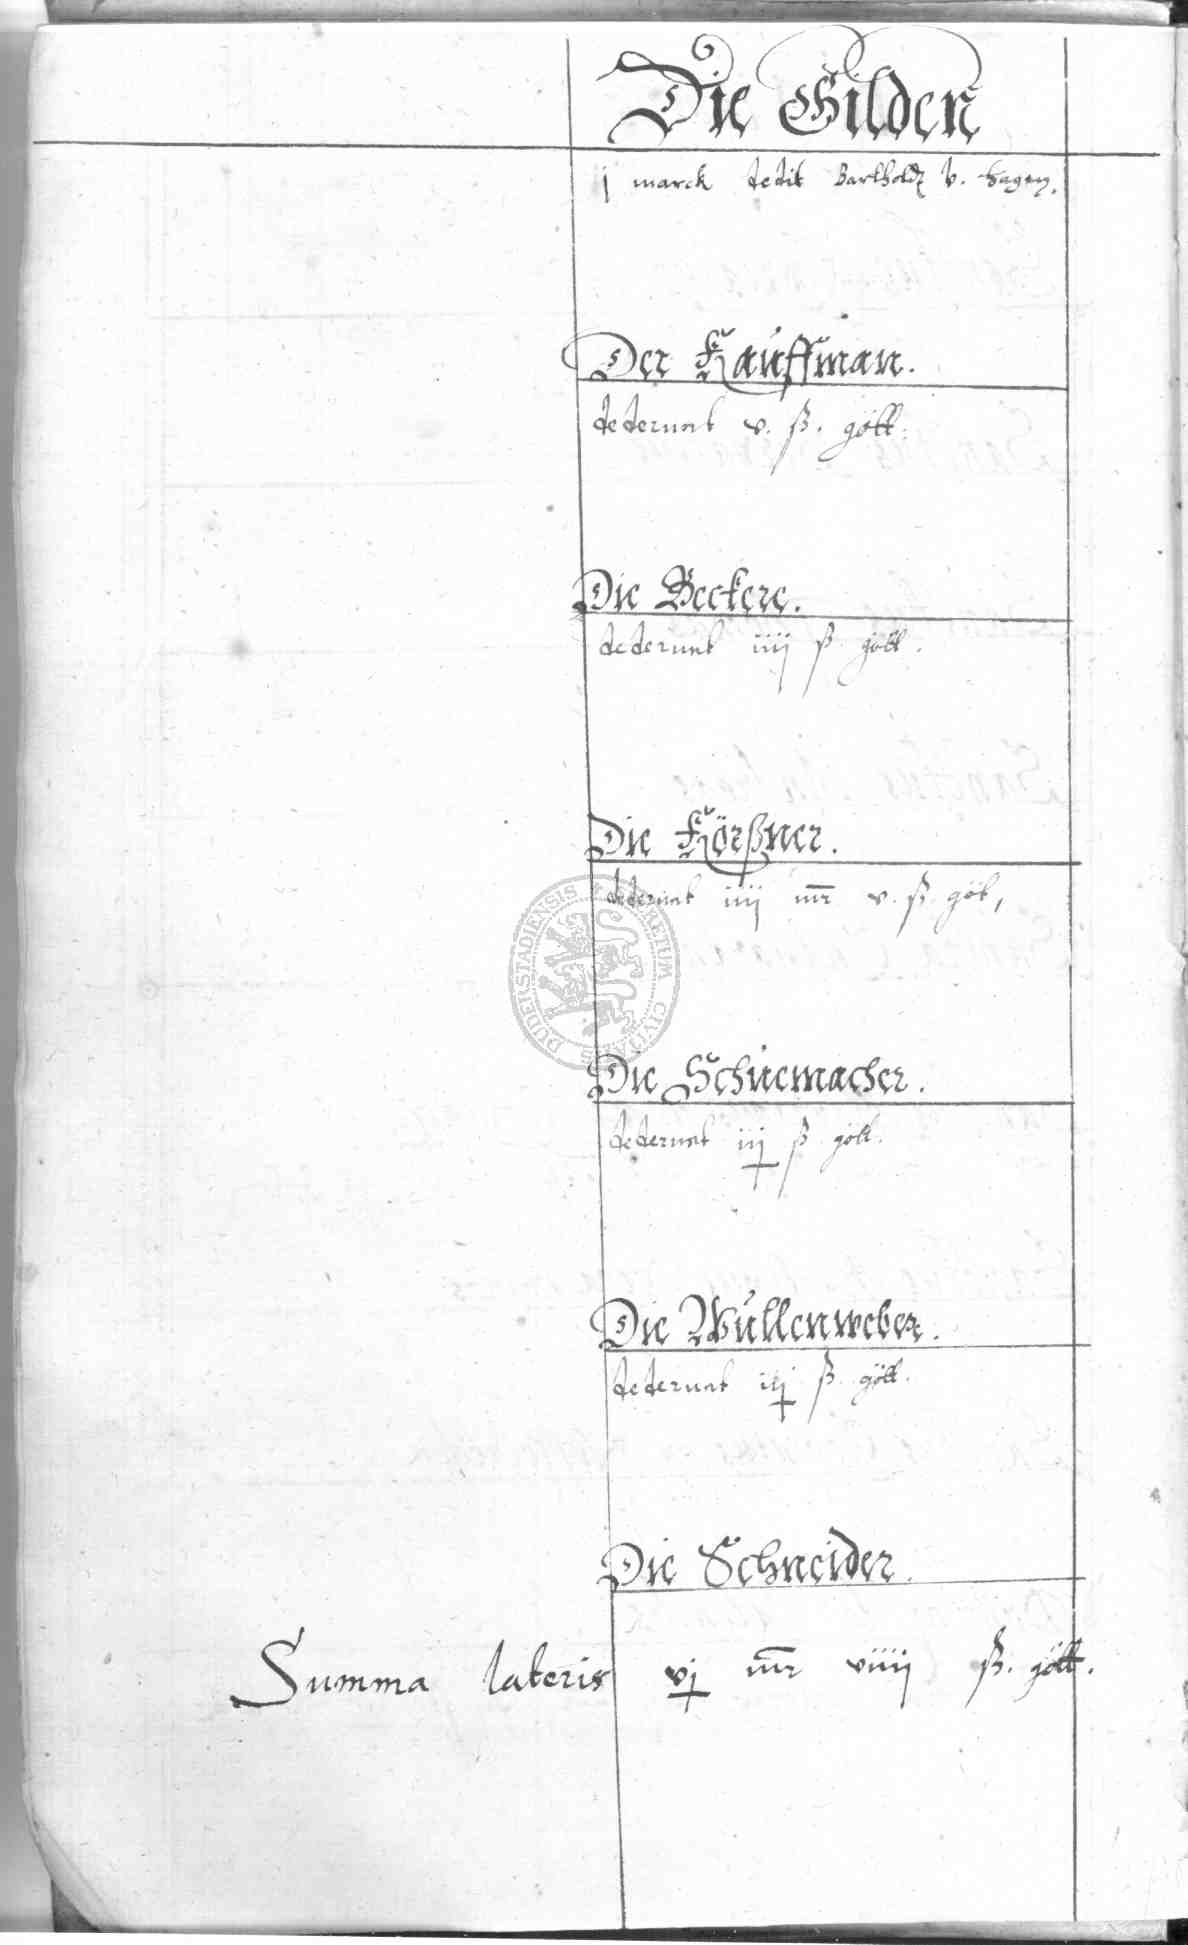 Die Gilden
j marck dedit Bartholdt v. Hagen.
Der Kauffman.
dederunt v. ß. gött.
Die Beckere.
dederunt iiij ß gött.
Die Körßner.
dederunt iiij mr v. ß göt,
Die Schuemacher.
dederunt iij ß gött.
Die Wullenweber.
dederunt iij ß. gött.
Die Schneider.
Summa lateris vj mr viiij ß. gött.
DUDERSTADIENSIS SECRETUM CIVITATIS